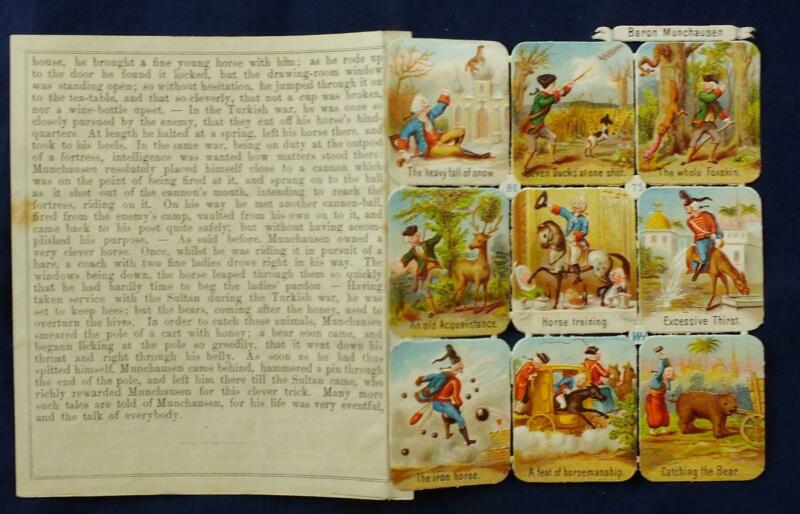 house, he brought a fine young horse with him; as he rode up
to the door he found it locked, but the drawing-room window
was standing open; so without hesitation, he jumped through it on
to the tea-table, and that so cleverly, that not a cup was broken,
nor a wine-bottle upset. — In the Turkish war, he was once so
closely pursued by the enemy, that they cut off his horse's hind-
quarters. At length he halted at a spring, left his horse there, and
took to his heels. In the same war, being on duty at the outpost
of a fortress, intelligence was wanted how matters stood there;
Munchausen resolutely placed himself close to a cannon which
was on the point of being fired at it, and sprang on to the ball
as it shot out of the cannon's mouth, intending to reach the
fortress, riding on it. On his way he met another cannon-ball,
fired from the enemy's camp, vaulted from his own on to it, and
came back to his post quite safely; but without having accom-
plished his purpose. — As said before, Munchausen owned a
very clever horse. Once, whilst he was riding it in pursuit of a
hare, a coach with two fine ladies drove right in his way. The
windows being down, the horse leaped through them so quickly
that he had hardly time to beg the ladies' pardon — Having
taken service with the Sultan during the Turkish war, he was
set to keep bees; but the bears, coming after the honey, used
to overturn the hives. In order to catch these animals, Munchausen
smeared the pole of a cart with honey; a bear soon came, and
begann licking at the pole so greedily, that it went down his
throat and right through his belly. As soon as he had thus
spitted himself, Munchausen came behind, hammered a pin through
the end of the pole, and left him there till the Sultan came, who
richly rewarded Munchausen for this clever trick. Many more
such tales are told of Munchausen, for his life was very eventful,
and the talk of everybody.
Baron Munchausen
The heavy fall of snow.
Seven Ducks at one shot.
The whole Foxskin.
86
75
An old Acquaintance.
Horse training.
Excessive Thirst.
The iron horse.
A feat of horsemanship.
Catching the Bear.